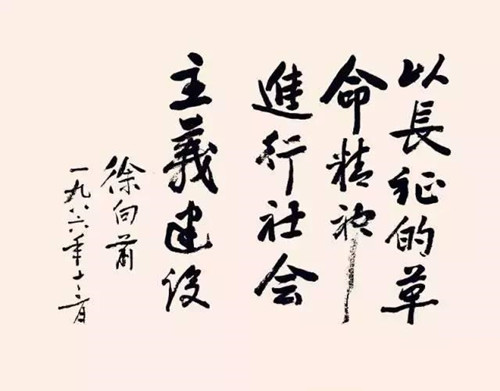 以長征的革
命精神
進行社会
主義建设
徐向前
一九八六年十二月